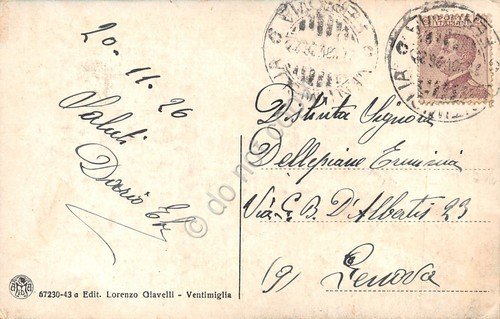 20-11-26
Saluti
Dario
Distinta Signora
Dellepiane Erminia
Via G. B. D'Albertis 23
(9) Genova
67230-43 a Edit. Lorenzo Olavelli - Ventimiglia